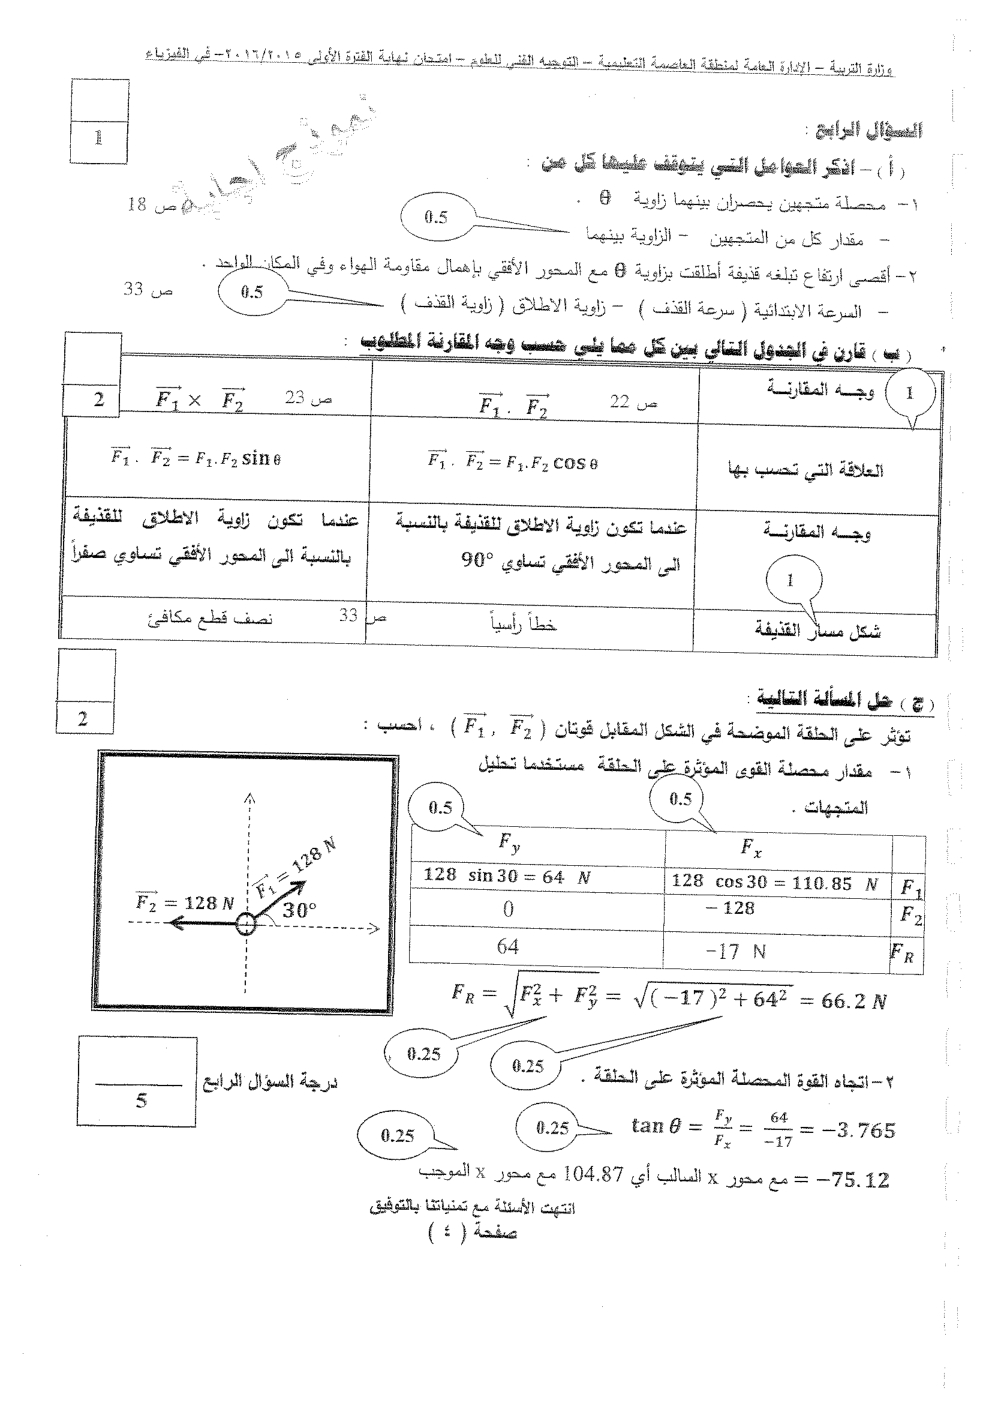 وزارة التربية – الإدارة العامة لمنطقة العاصمة التعليمية – التوجيه الفني للعلوم – امتحان نهاية الفترة الأولى ٢٠١٦/٢٠١٥ – في الفيزياء
نموذج اجابة
1
السؤال الرابع :
( أ ) – اذكر العوامل التي يتوقف عليها كل من :
١– محصلة متجهين يحصران بينهما زاوية θ . ص 18
– مقدار كل من المتجهين – الزاوية بينهما 0.5
٢– أقصى ارتفاع تبلغه قذيفة أطلقت بزاوية θ مع المحور الأفقي بإهمال مقاومة الهواء وفي المكان الواحد .
– السرعة الابتدائية ( سرعة القذف ) – زاوية الاطلاق ( زاوية القذف ) 0.5 ص 33
( ب ) قارن في الجدول التالي بين كل مما يلي حسب وجه المقارنة المطلوب :
2
وجه المقارنة 1 F₁ . F₂ ص 22 F₁ × F₂ ص 23
العلاقة التي تحسب بها F₁ . F₂ = F₁.F₂ cos θ F₁ . F₂ = F₁.F₂ sin θ
وجه المقارنة عندما تكون زاوية الاطلاق للقذيفة بالنسبة الى المحور الأفقي تساوي 90° عندما تكون زاوية الاطلاق للقذيفة بالنسبة الى المحور الأفقي تساوي صفراً
1
شكل مسار القذيفة خطاً رأسياً ص 33 نصف قطع مكافئ
2
( ج ) حل المسألة التالية :
تؤثر على الحلقة الموضحة في الشكل المقابل قوتان ( F₁ , F₂ ) ، احسب :
١– مقدار محصلة القوى المؤثرة على الحلقة مستخدما تحليل
المتجهات .
0.5 0.5
F₁ = 128 N
F₂ = 128 N
30°
Fx Fy
F₁ 128 cos 30 = 110.85 N 128 sin 30 = 64 N
F₂ – 128 0
F_R –17 N 64
F_R = √(Fx² + Fy²) = √((–17)² + 64²) = 66.2 N
0.25 0.25
٢– اتجاه القوة المحصلة المؤثرة على الحلقة .
درجة السؤال الرابع
5
tan θ = Fy/Fx = 64/–17 = –3.765
0.25 0.25
= –75.12 مع محور x السالب أي 104.87 مع محور x الموجب
انتهت الأسئلة مع تمنياتنا بالتوفيق
صفحة ( ٤ )